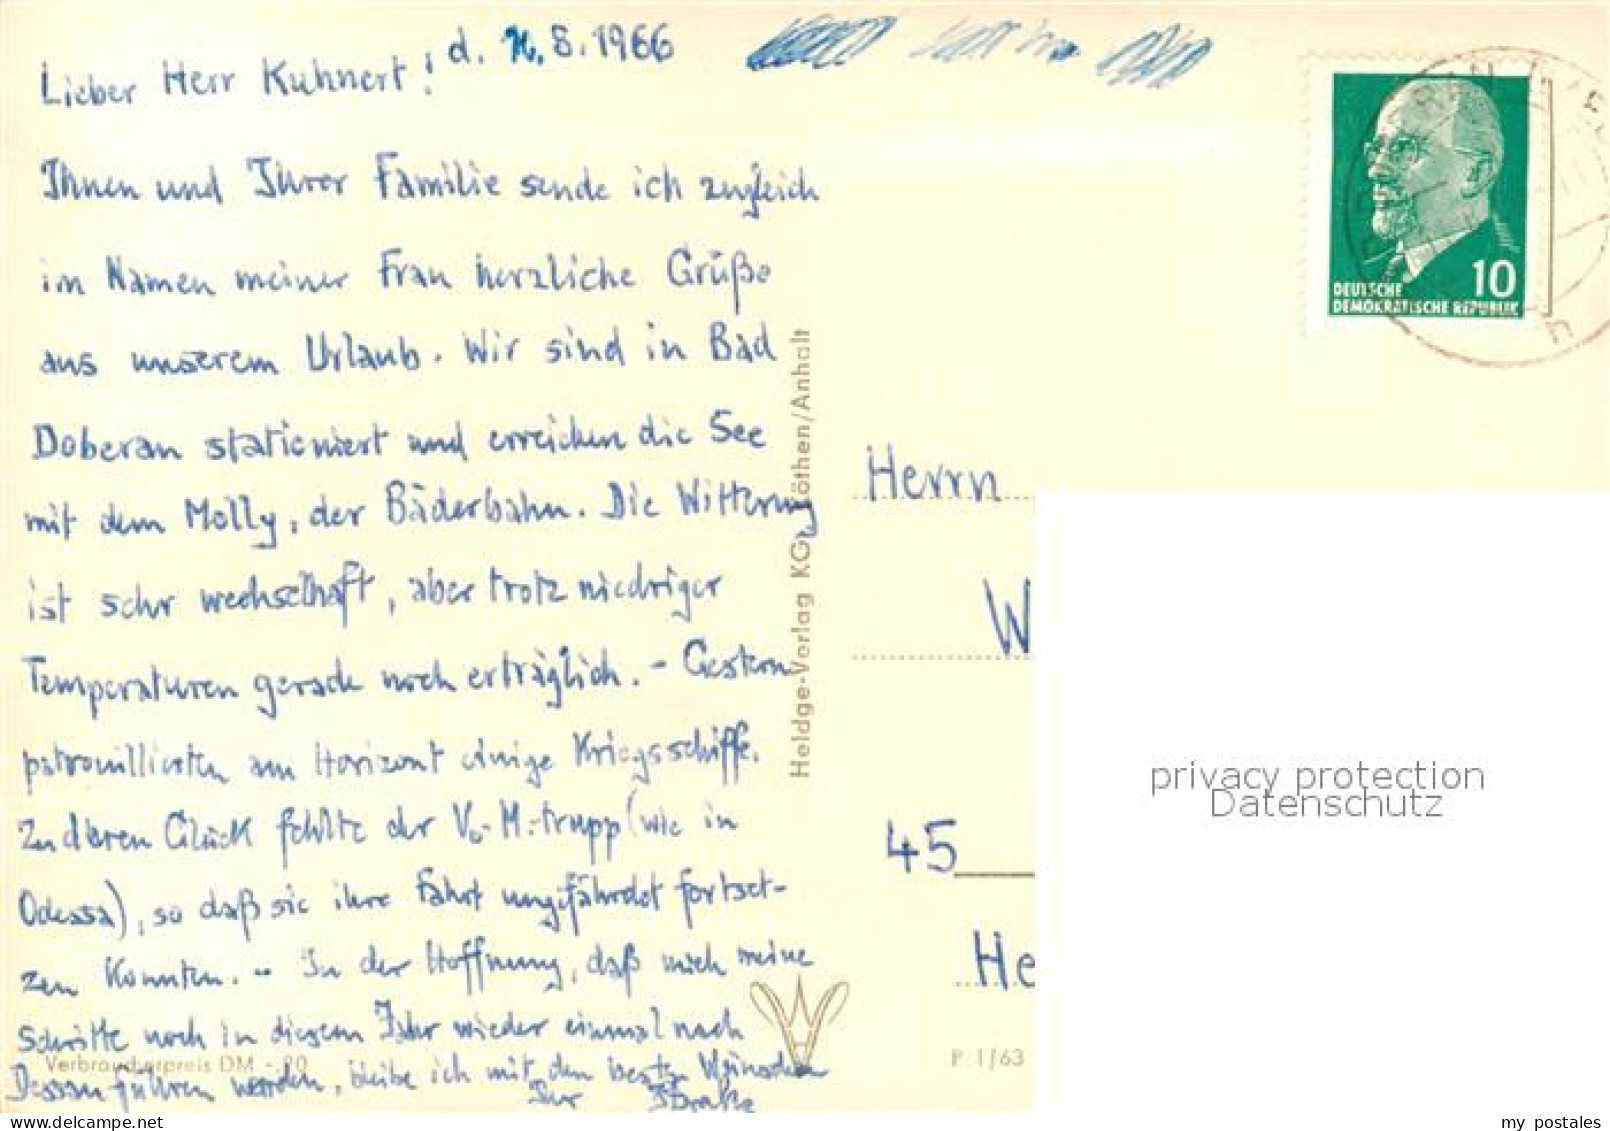 Lieber Herr Kuhnert! d. 8.1966
Ihnen und Ihrer Familie sende ich zugleich
im Namen meiner Frau herzliche Grüße
aus unserem Urlaub. Wir sind in Bad
Doberan stationiert und erreichen die See
mit dem Molly, der Bäderbahn. Die Witterung
ist sehr wechselhaft, aber trotz niedriger
Temperaturen gerade noch erträglich. - Gestern
patrouillierten am Horizont einige Kriegsschiffe.
Zu deren Glück fehlte der V.-M.-trupp (wie in
Odessa), so daß sie ihre Fahrt ungefährdet fortset-
zen konnten. - In der Hoffnung, daß mich meine
Schritte noch in diesem Jahr wieder einmal nach
Dessau führen werden, bleibe ich mit den besten Wünschen
Ihr
Verbraucherpreis DM -.20
Heldge-Verlag KG, Köthen/Anhalt
10
DEUTSCHE
DEMOKRATISCHE REPUBLIK
Herrn
W
45
He
P 1/63
privacy protection
Datenschutz
www.delcampe.net
my_postales